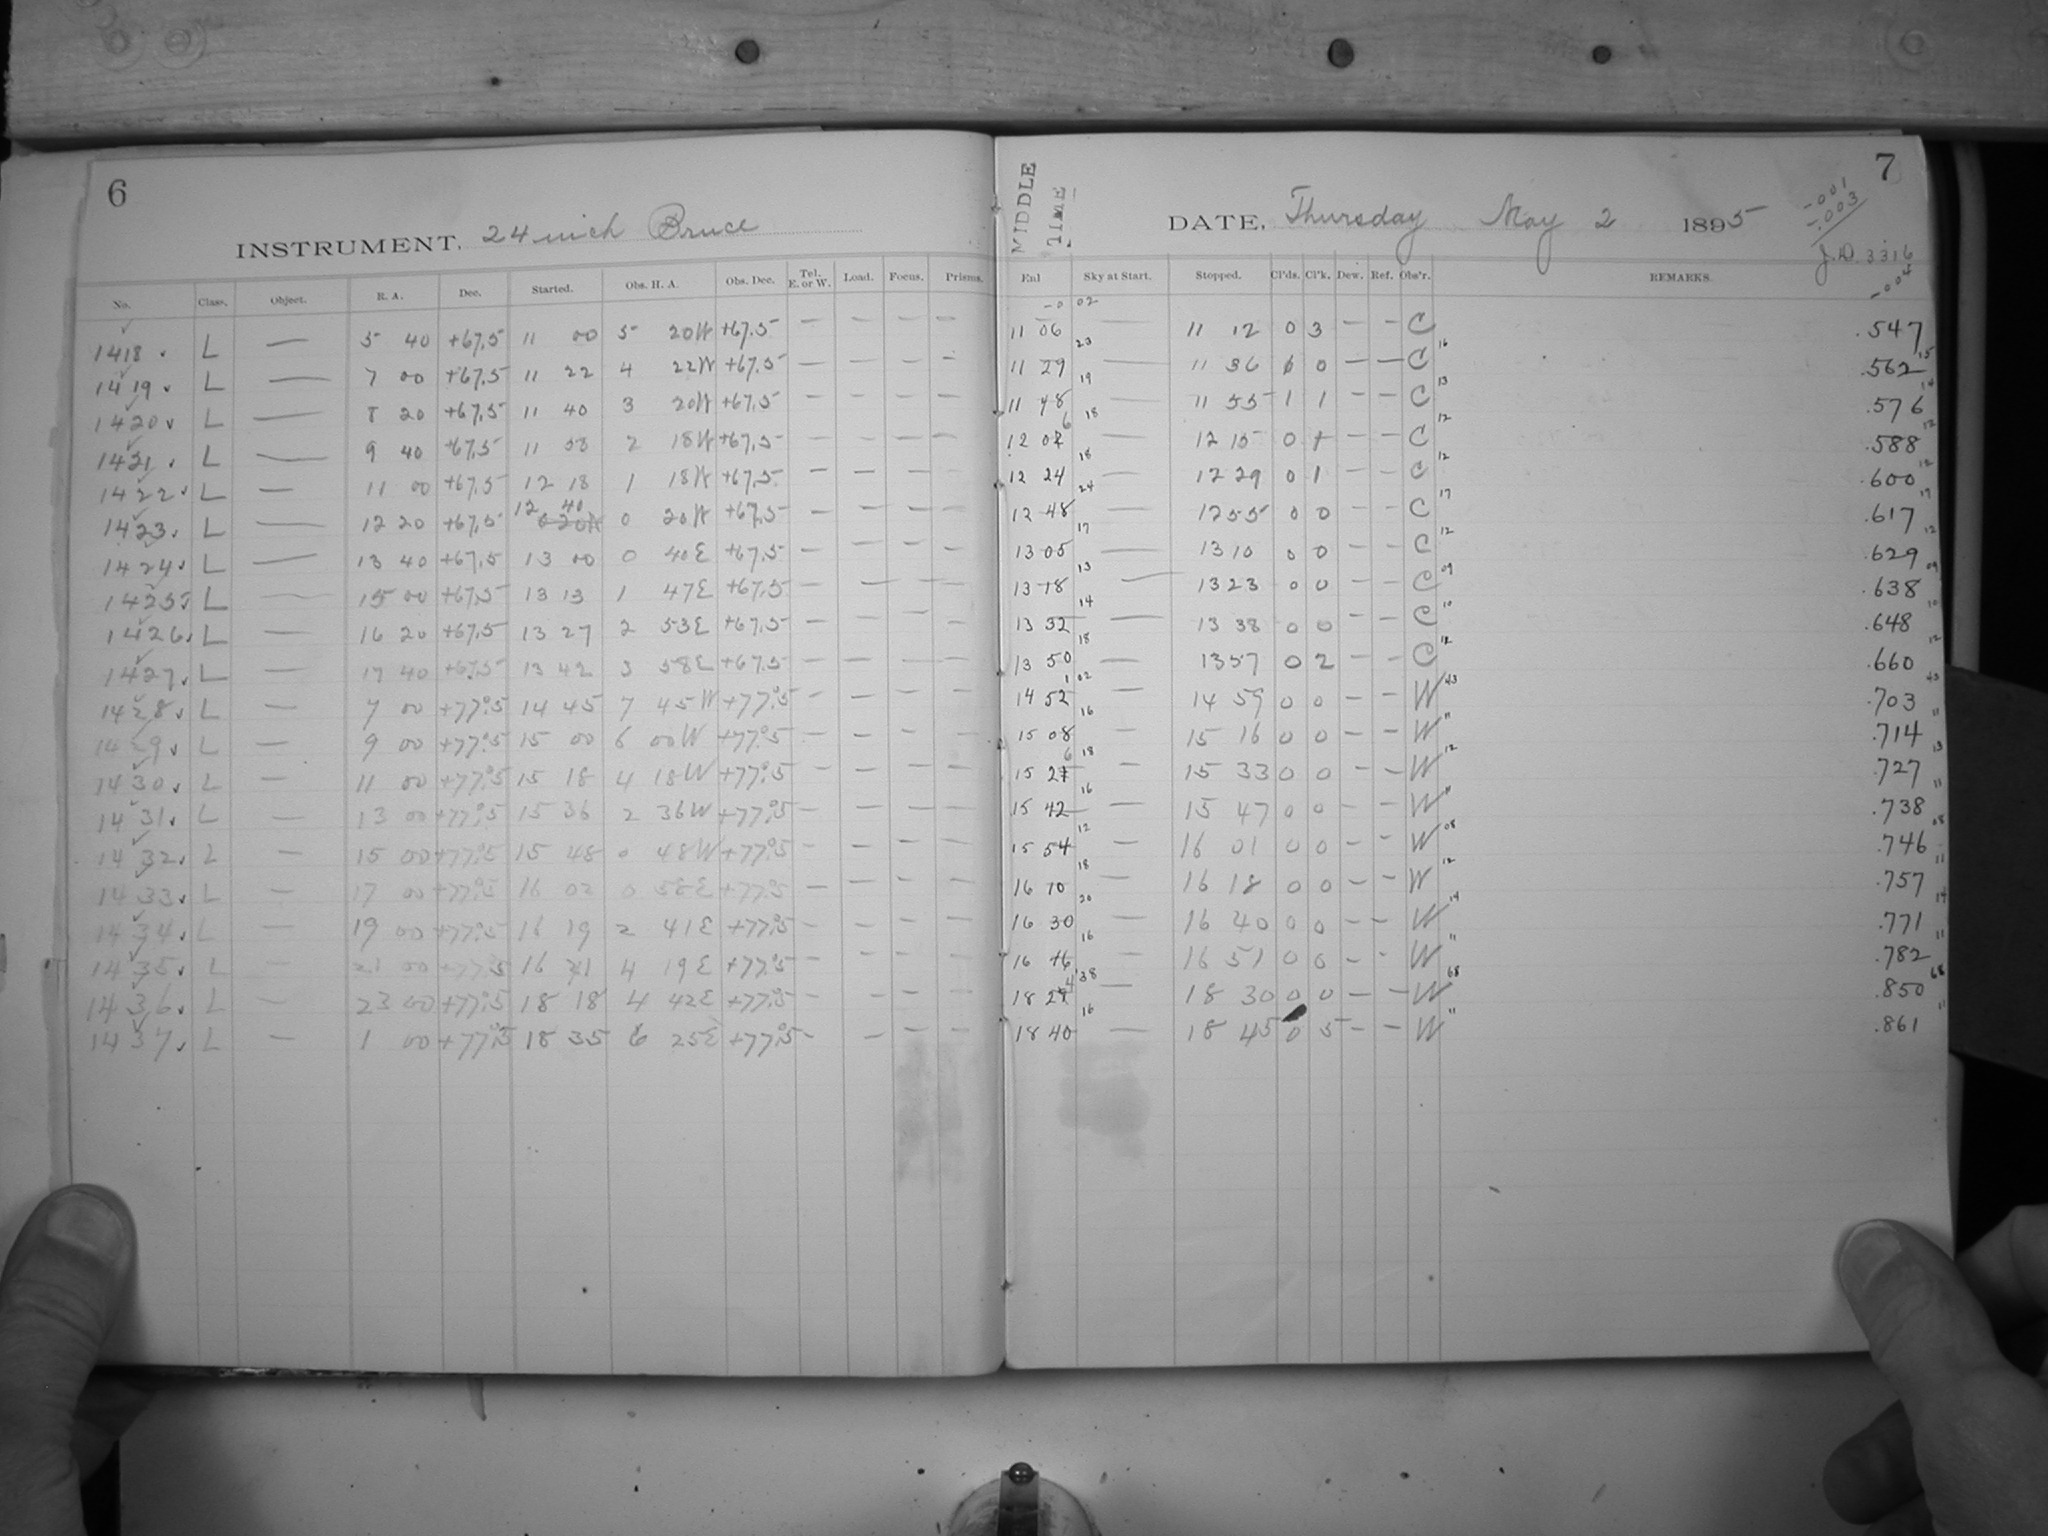 6
INSTRUMENT, 24 inch Bruce
No. Class. Object. R. A. Dec. Started. Obs. H. A. Obs. Dec. Tel. E. or W. Load. Focus. Prisms.
1418 L — 5 40 +67.5 11 00 5 20W +67.5 — — — —
1419 L — 7 00 +67.5 11 22 4 22W +67.5 — — — —
1420 L — 8 20 +67.5 11 40 3 20W +67.5 — — — —
1421 L — 9 40 +67.5 11 58 2 18W +67.5 — — — —
1422 L — 11 00 +67.5 12 18 1 18W +67.5 — — — —
1423 L — 12 20 +67.5 12 40 0 20W +67.5 — — — —
1424 L — 13 40 +67.5 13 00 0 40E +67.5 — — — —
1425 L — 15 00 +67.5 13 13 1 47E +67.5 — — — —
1426 L — 16 20 +67.5 13 27 2 53E +67.5 — — — —
1427 L — 17 40 +67.5 13 42 3 58E +67.5 — — — —
1428 L — 7 00 +77°.5 14 45 7 45W +77°.5 — — — —
1429 L — 9 00 +77°.5 15 00 6 00W +77°.5 — — — —
1430 L — 11 00 +77°.5 15 18 4 18W +77°.5 — — — —
1431 L — 13 00 +77°.5 15 36 2 36W +77°.5 — — — —
1432 L — 15 00 +77°.5 15 48 0 48W +77°.5 — — — —
1433 L — 17 00 +77°.5 16 02 0 58E +77°.5 — — — —
1434 L — 19 00 +77°.5 16 19 2 41E +77°.5 — — — —
1435 L — 21 00 +77°.5 16 41 4 19E +77°.5 — — — —
1436 L — 23 00 +77°.5 18 18 4 42E +77°.5 — — — —
1437 L — 1 00 +77°.5 18 35 6 25E +77°.5 — — — —
7
MIDDLE TIME
DATE, Thursday May 2 1895
-.001
-.003
J.D. 3316
-.004
End Sky at Start. Stopped. Cl'ds. Cl'k. Dew. Ref. Obs'r. REMARKS.
-0 02
11 06 — 11 12 0 3 — — C .547
11 29 23 — 11 36 0 0 — — C 16 .562 15
11 48 19 — 11 55 1 1 — — C 13 .576 14
12 06 18 — 12 15 0 + — — C 12 .588 12
12 24 18 — 12 29 0 1 — — C 12 .600 12
12 48 24 — 12 55 0 0 — — C 17 .617 17
13 05 17 — 13 10 0 0 — — C 12 .629 12
13 18 13 — 13 23 0 0 — — C 09 .638 09
13 32 14 — 13 38 0 0 — — C 10 .648 10
13 50 18 — 13 57 0 2 — — C 12 .660 12
14 52 1 02 — 14 59 0 0 — — W 43 .703 43
15 08 16 — 15 16 0 0 — — W 11 .714 11
15 26 18 — 15 33 0 0 — — W 12 .727 13
15 42 16 — 15 47 0 0 — — W 11 .738 11
15 54 12 — 16 01 0 0 — — W 08 .746 08
16 10 18 — 16 18 0 0 — — W 12 .757 11
16 30 20 — 16 40 0 0 — — W 14 .771 14
16 46 16 — 16 51 0 0 — — W 11 .782 11
18 24 1 38 — 18 30 0 0 — — W 68 .850 68
18 40 16 — 18 45 0 5 — — W 11 .861 11